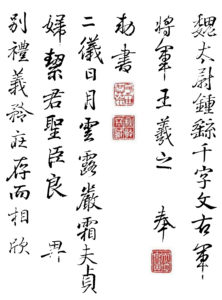 魏太尉鍾繇千字文右軍
將軍王羲之 奉
勅書
二儀日月雲露嚴霜夫貞
婦絜君聖臣良
別禮義矜莊存而相欣